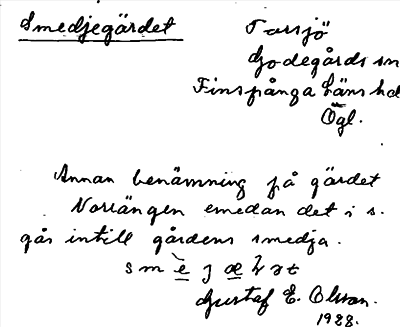 Smedjegärdet
Tarsjö
Godegårds sn
Finspånga läns hd
Ögl.
Annan benämning på gärdet
Norrängen emedan det i s.
går intill gårdens smedja.
Gustaf E. Olsson.
1988.